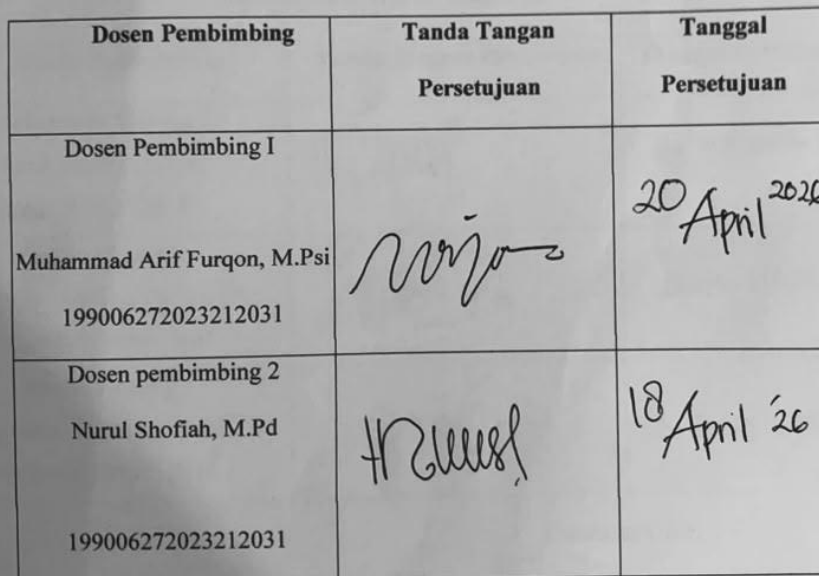 Dosen Pembimbing
Tanda Tangan
Persetujuan
Tanggal
Persetujuan
Dosen Pembimbing I
Muhammad Arif Furqon, M.Psi
199006272023212031
20 April 2026
Dosen pembimbing 2
Nurul Shofiah, M.Pd
199006272023212031
18 April '26